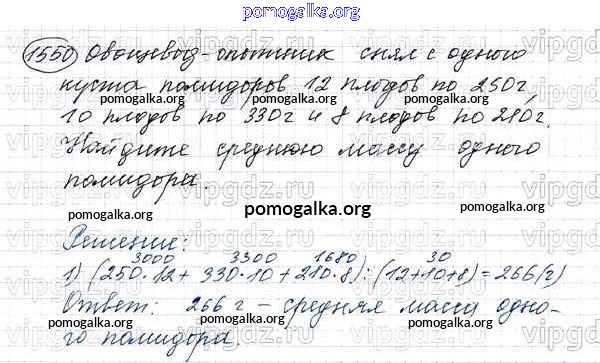 pomogalka.org
1550 Овощевод-опытник снял с одного
куста помидоров 12 плодов по 250г,
pomogalka.org pomogalka.org pomogalka.org
10 плодов по 330г и 8 плодов по 210г.
Найдите среднюю массу одного
pomogalka.org pomogalka.org pomogalka.org
помидора.
pomogalka.org
Решение:
3000 3300 1680 30
1) (250·12+330·10+210·8):(12+10+8)=266(г)
pomogalka.org pomogalka.org pomogalka.org
Ответ: 266 г – средняя масса одно-
го помидора.
pomogalka.org pomogalka.org pomogalka.org
pomogalka.org